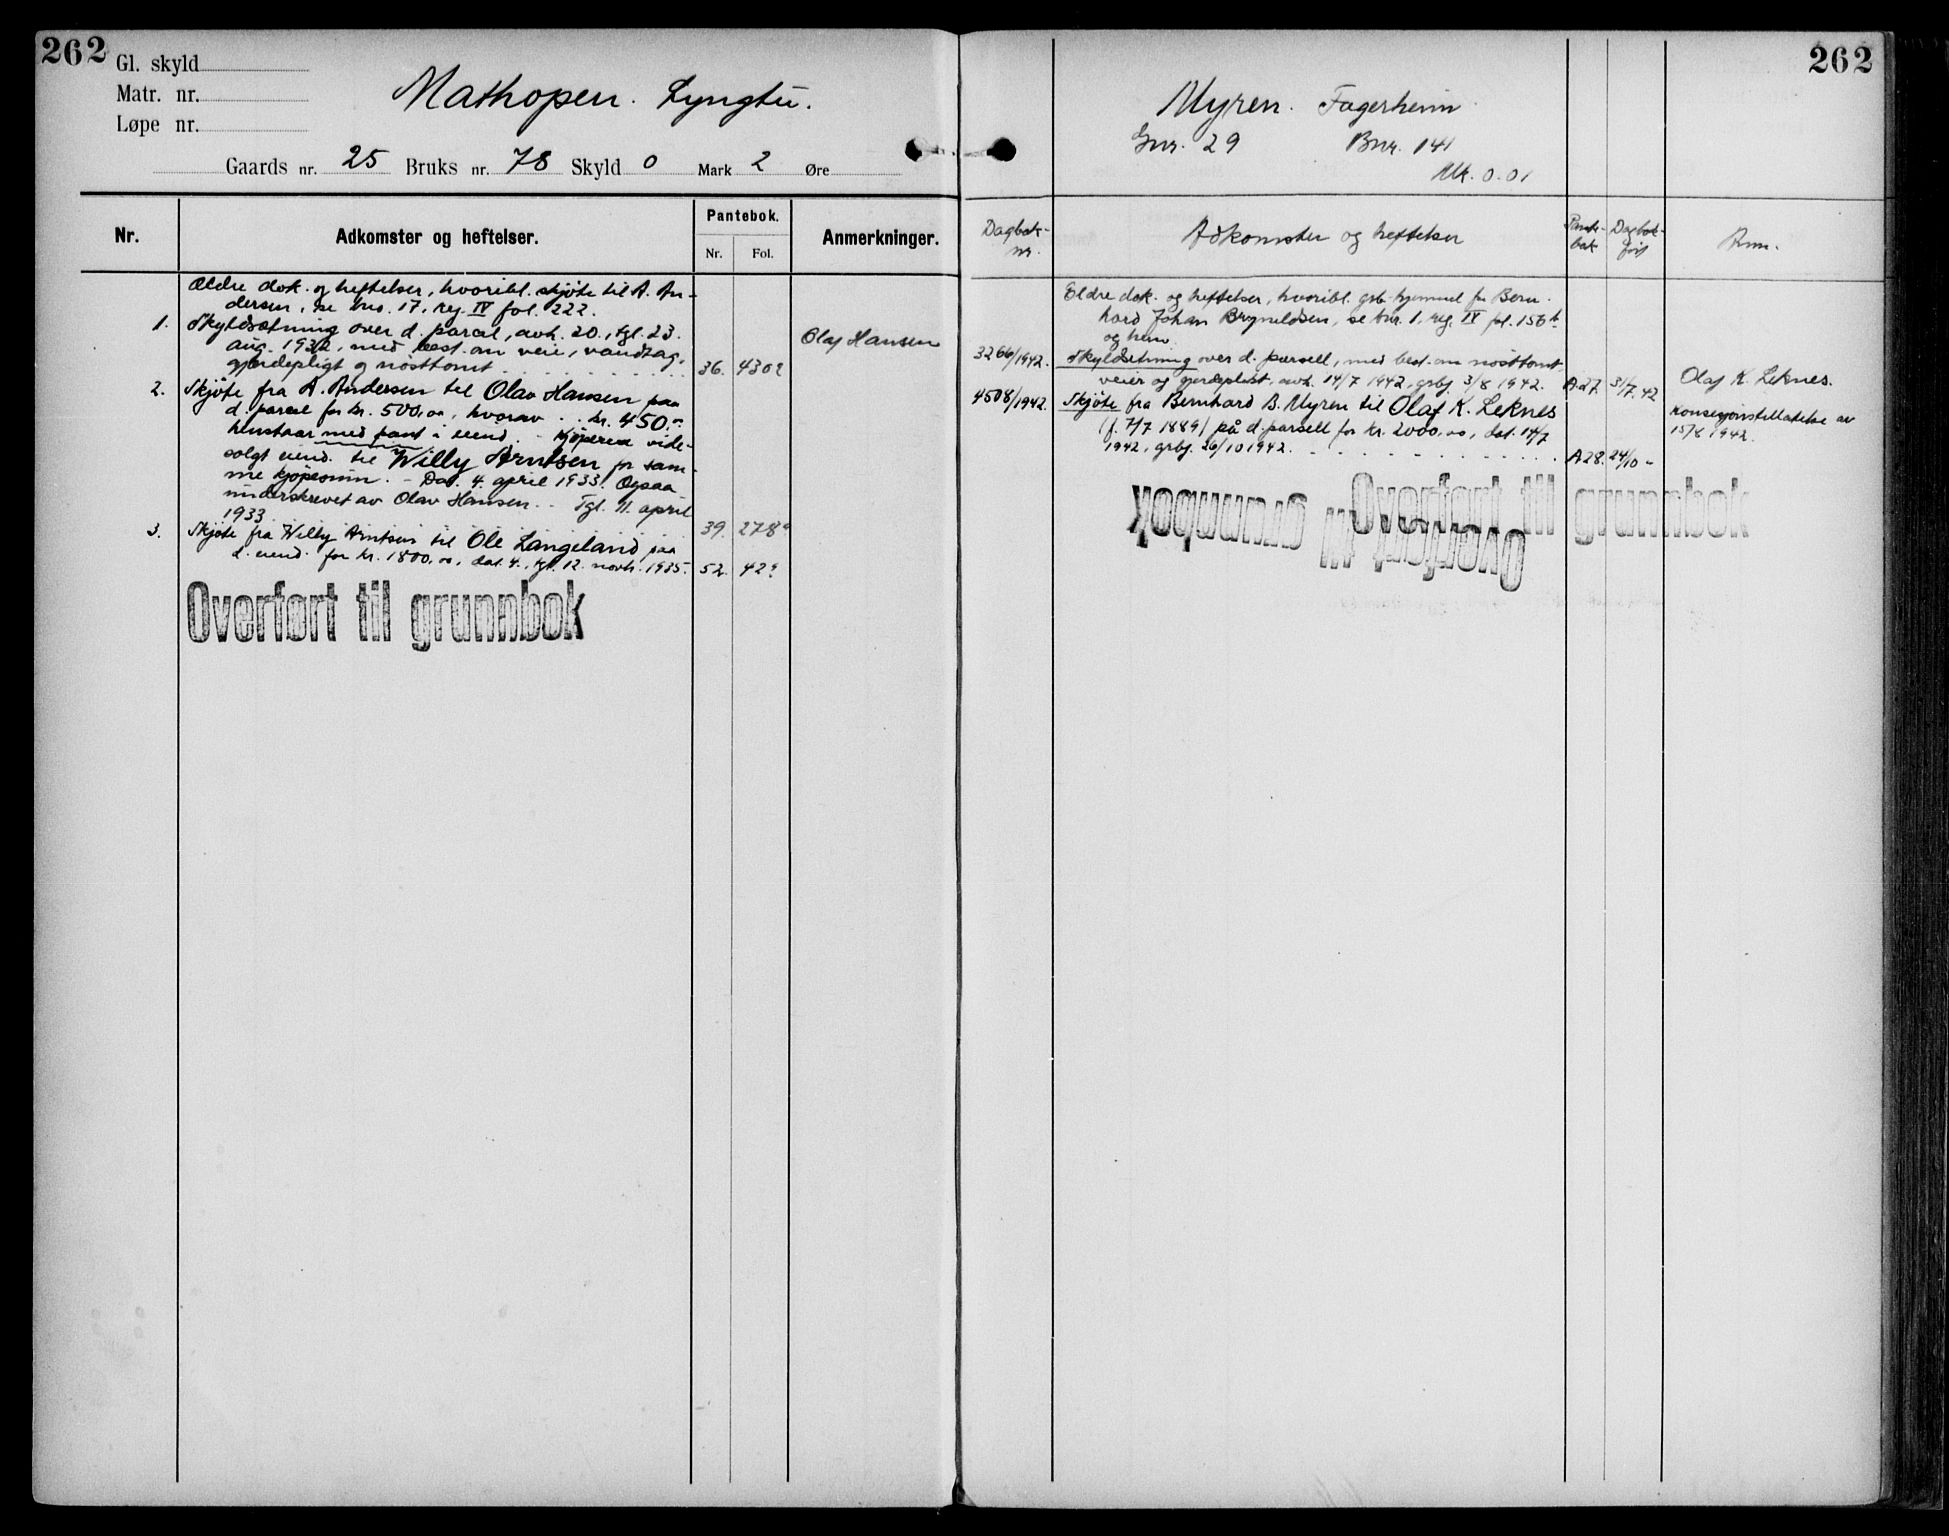 262
Gl. skyld
Matr. nr.
Løpe nr.
Mathopen. Lyngtu.
Gaards nr. 25 Bruks nr. 78 Skyld 0 Mark 2 Øre
Nr. Adkomster og heftelser. Pantebok. Nr. Fol. Anmerkninger.
Ældre dok. og heftelser, hvoribl. skjøte til A. An-
dersen, se bno. 17, reg. IV fol. 222.
1. Skyldsætning over d. parcel, avh. 20., tgl. 23.
aug. 1932, med best. om veie, vandtag,
gjærdepligt og nosttomt . . . 36. 430
Olaf Hansen
2. Skjøte fra A. Andersen til Olav Hansen paa
d. parcel for kr. 500,00, hvorav . . kr. 450.-
henstaar med pant i eiend. - Kjøperen vide-
solgt eiend. til Willy Arntsen for sam-
me kjøpesum. - Dat. 4. april 1933. Ogsaa
underskrevet av Olav Hansen. - Tgl. 11. april
1933 . . . 39. 278
3. Skjøte fra Willy Arntsen til Ole Langeland paa
d. eiend. for kr. 1800,00, dat. 4., tgl. 12. novbr. 1935. 52. 42
Overført til grunnbok
262
Myren. Fagerheim
Gnr. 29 Bnr. 141
Mk. 0.01
Dagbok-
nr.
Adkomster og heftelser
Pante-
bok
Dagbok-
ført
Anm.
Eldre dok. og heftelser, hvoribl. grb. hjemmel for Bern-
hard Johan Brynildsen, se bnr. 1, reg. IV fol. 156 b
og hem.
3266/1942. Skyldsetning over d. parsell, med best. om nosttomt
veier og gjerdeplikt, avh. 14/7 1942, grbj. 3/8 1942. A27. 31/7.42
Olaf K. Leknes.
4508/1942. Skjøte fra Bernhard B. Myren til Olaf K. Leknes
(f. 7/7 1889) på d. parsell for kr. 2000,00, dat. 14/7
1942, grbj. 26/10 1942. . . . A28. 24/10 -
Konsesjonstillatelse av
15/8 1942.
Overført til grunnbok
Overført til grunnbok